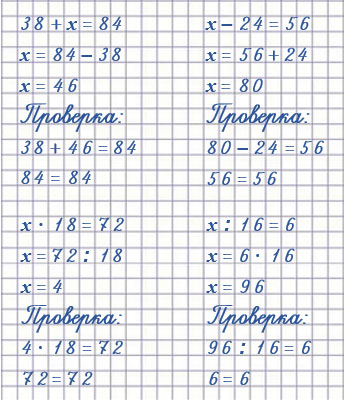 38 + x = 84
x = 84 - 38
x = 46
Проверка:
38 + 46 = 84
84 = 84
x - 24 = 56
x = 56 + 24
x = 80
Проверка:
80 - 24 = 56
56 = 56
x · 18 = 72
x = 72 : 18
x = 4
Проверка:
4 · 18 = 72
72 = 72
x : 16 = 6
x = 6 · 16
x = 96
Проверка:
96 : 16 = 6
6 = 6